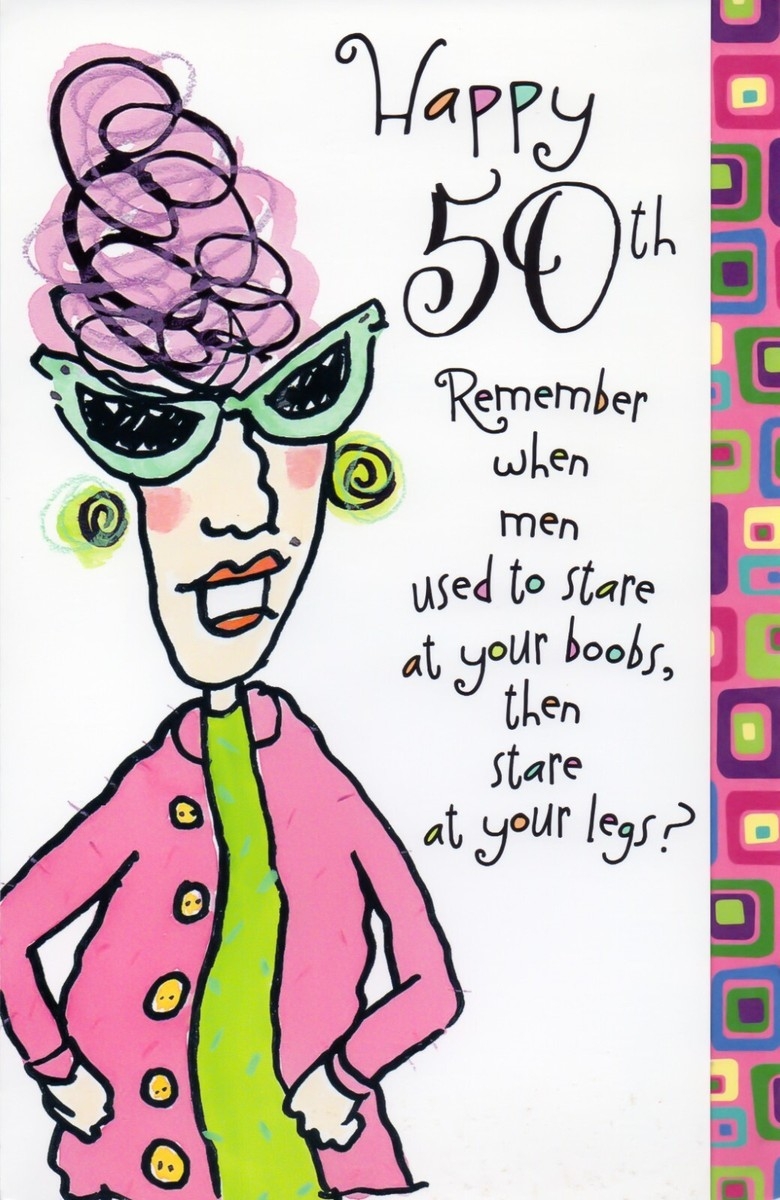 Happy
50th
Remember
when
men
used to stare
at your boobs,
then
stare
at your legs?